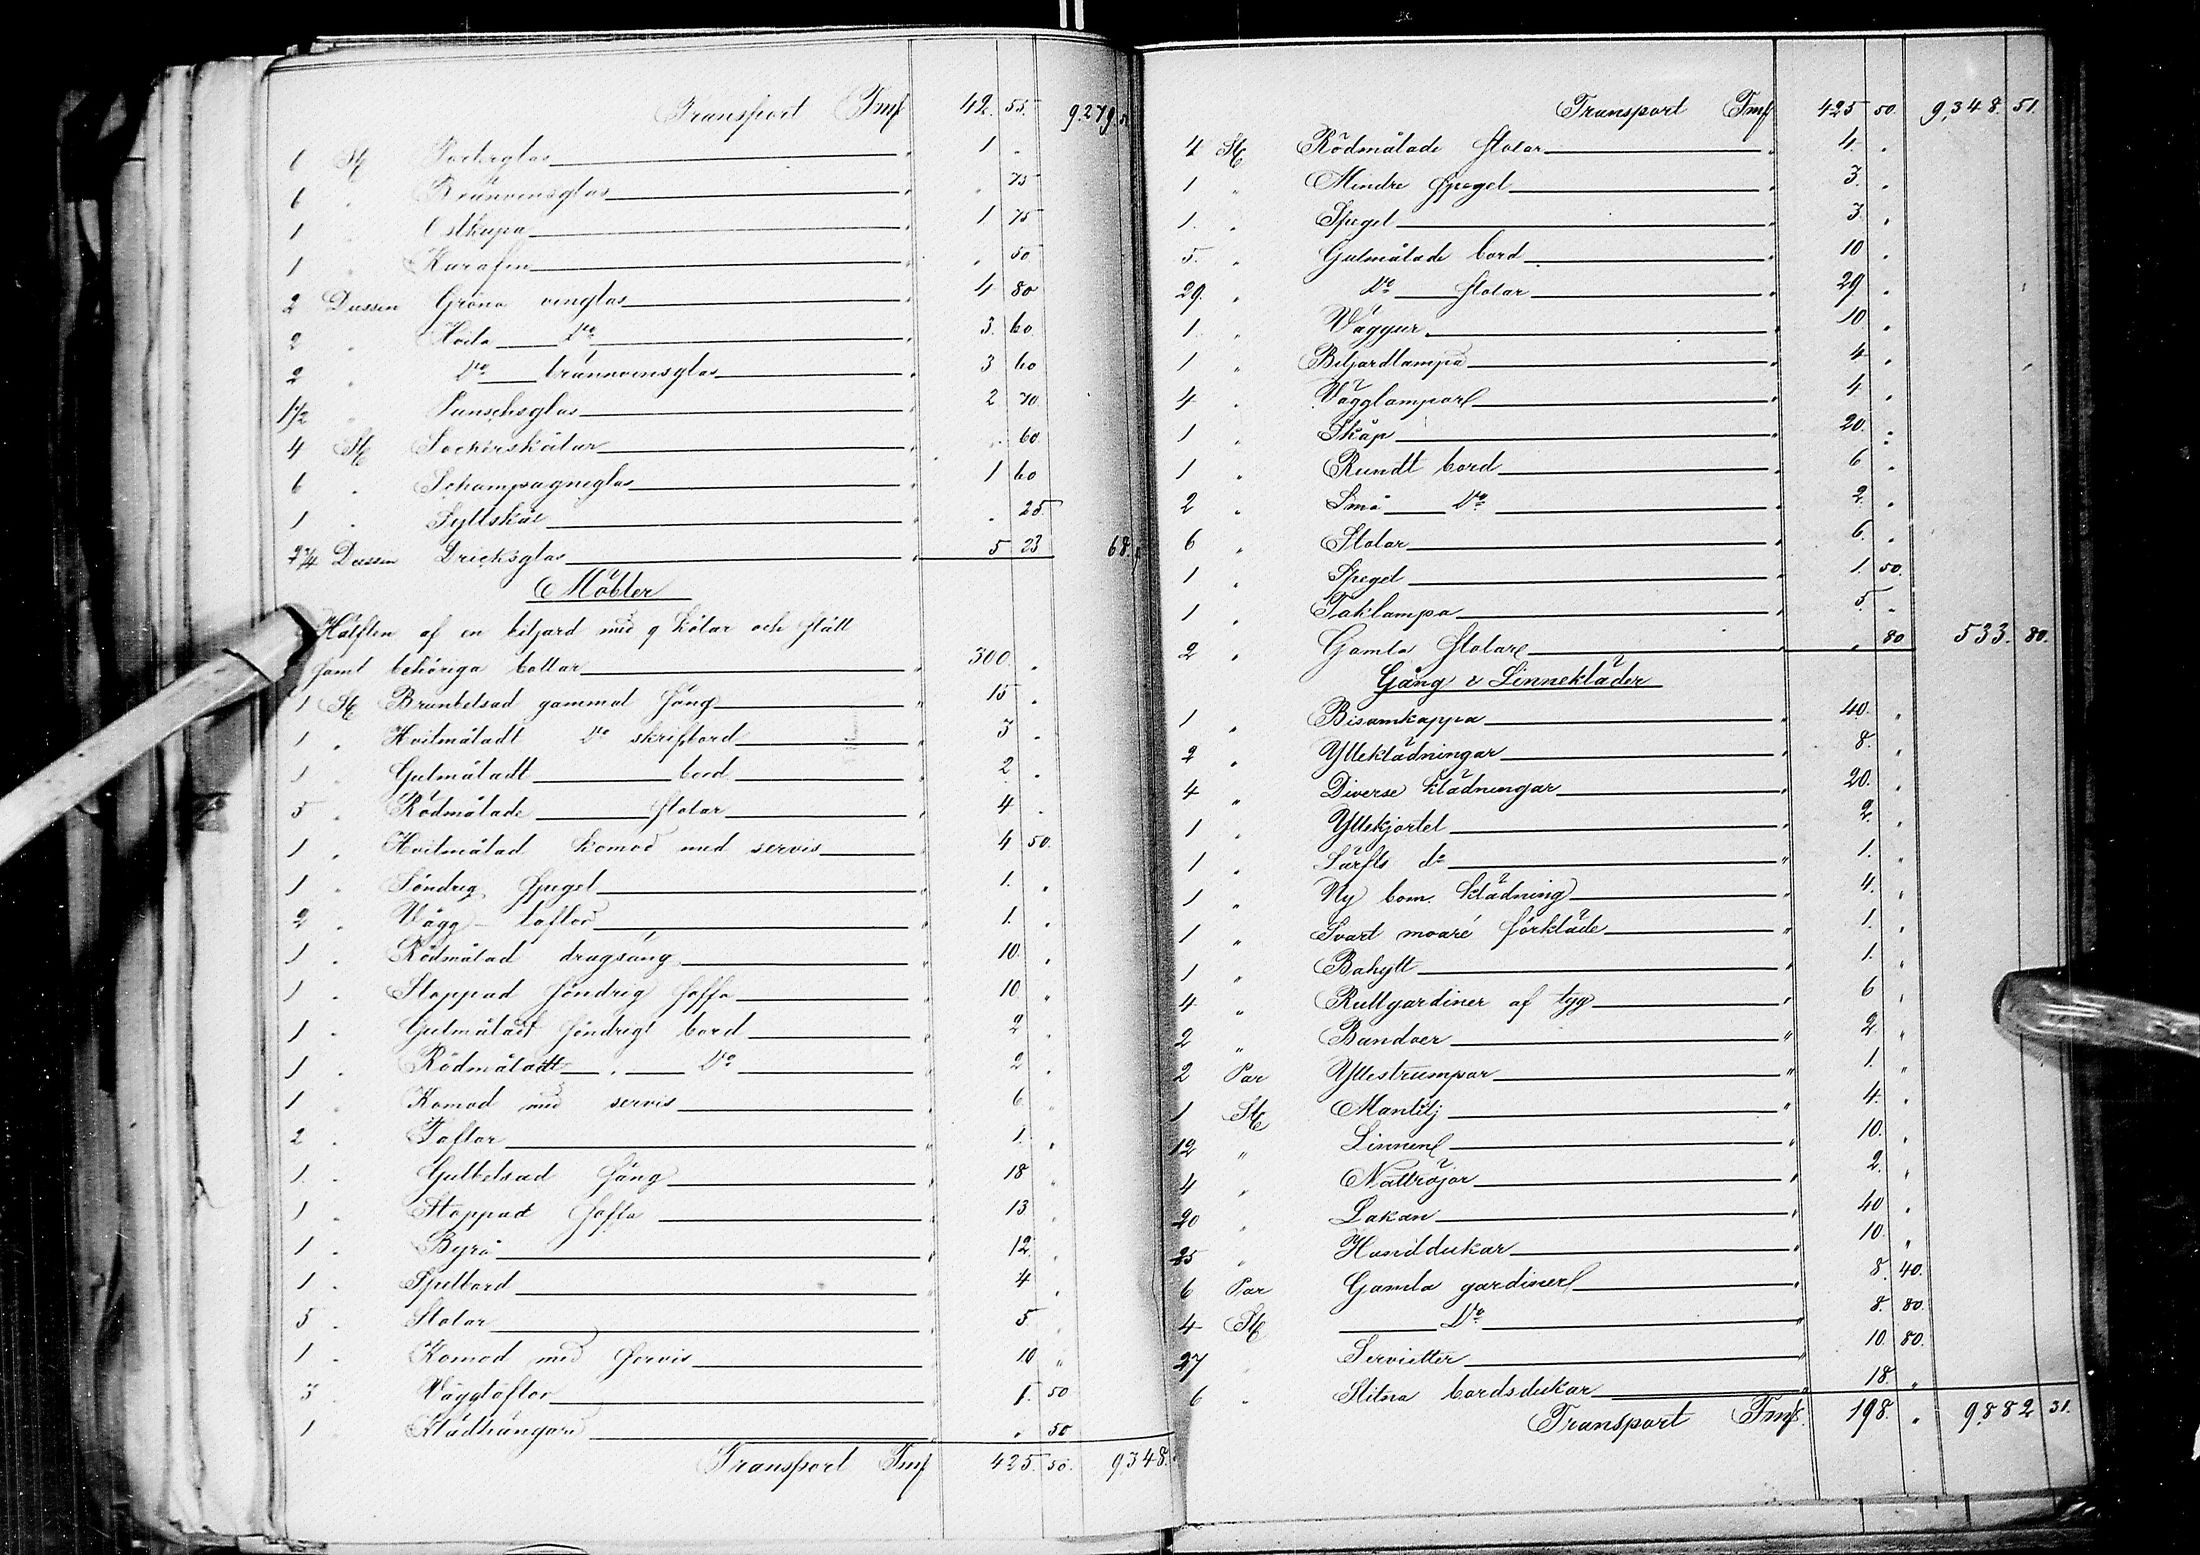 Transport Fmk 42. 55. 9.279.
6 St Porterglas " 1 "
6 " Brännvinsglas " " 75
1 " Ostkupa " 1 75
1 " Karafin " " 50
2 Dussin Gröna vinglas " 4 80
2 " Hvita Do " 3. 60
2 " Do brännvinsglas " 3 60
1 1/2 " Punschglas " 2 70
4 St Sockerskålar " " 60
6 " Schampagneglas " 1 60
1 " Syltskål " " 25.
2 3/4 Dussin Dricksglas " 5 23 68.
Möbler
Hälften af en biljard med 9 kölar och ställ
samt behöriga bollar " 300. "
1 St Brunbetsad gammal säng " 15 "
1 " Hvitmåladt Do skrifbord " 3 "
1 " Gulmåladt bord " 2. "
5 " Rödmålade stolar " 4 "
1 " Hvitmålad komod med servis " 4 50.
1 " Söndrig spegel " 1. "
2 " Vägg-taflor " 1. "
1 " Rödmålad dragsäng " 10. "
1 " Stoppad söndrig soffa " 10 "
1 " Gulmåladt söndrigt bord " 2 "
1 " Rödmåladt " Do " 2 "
1 " Komod med servis " 6 "
2 " Taflor " 1. "
1. " Gulbetsad säng " 18 "
1 " Stoppad soffa " 13 "
1 " Byrå " 12 "
1 " Spelbord " 4 "
5 " Stolar " 5 "
1 " Komod med servis " 10 "
3 " Väggtaflor " 1. 50
1 " Klädhängare " " 50
Transport Fmk 425. 50. 9348.
Transport Fmk 425 50. 9,348. 51.
4 St Rödmålade stolar " 4. "
1 " Mindre spegel " 3. "
1. " Spegel " 3. "
5. " Gulmålade bord " 10 "
29. " Do stolar " 29 "
1. " Väggur " 10 "
1 " Biljardlampa " 4 "
4 " Vägglampor " 4 "
1 " Skåp " 20. "
1 " Rundt bord " 6 "
2 " Små Do " 2. "
6 " Stolar " 6. "
1 " Spegel " 1. 50.
1 " Taklampa " 5. "
2 " Gamla stolar " " 80 533. 80.
Gång & Linnekläder
1 " Bisamkappa " 40. "
2 " Ylleklädningar " 8. "
4 " Diverse klädningar " 20. "
1 " Yllekjortel " 2. "
1 " Lärfts do " 1. "
1 " Ny bom. klädning " 4. "
1 " Svart moaré förkläde " 1. "
1 " Bahytt " 1. "
4 " Rullgardiner af tyg " 6 "
2 " Bandoer " 2. "
2 Par Yllestrumpor " 1. "
1 St Mantilj " 4. "
12 " Linnen " 10. "
4 " Nattröjor " 2. "
20 " Lakan " 40 "
25 " Handdukar " 10. "
6 Par Gamla gardiner " 8. 40.
4 St Do " 8. 80.
27 " Servietter " 10. 80.
6 " Slitna bordsdukar " 18. "
Transport Fmk. 198. " 9882 31.